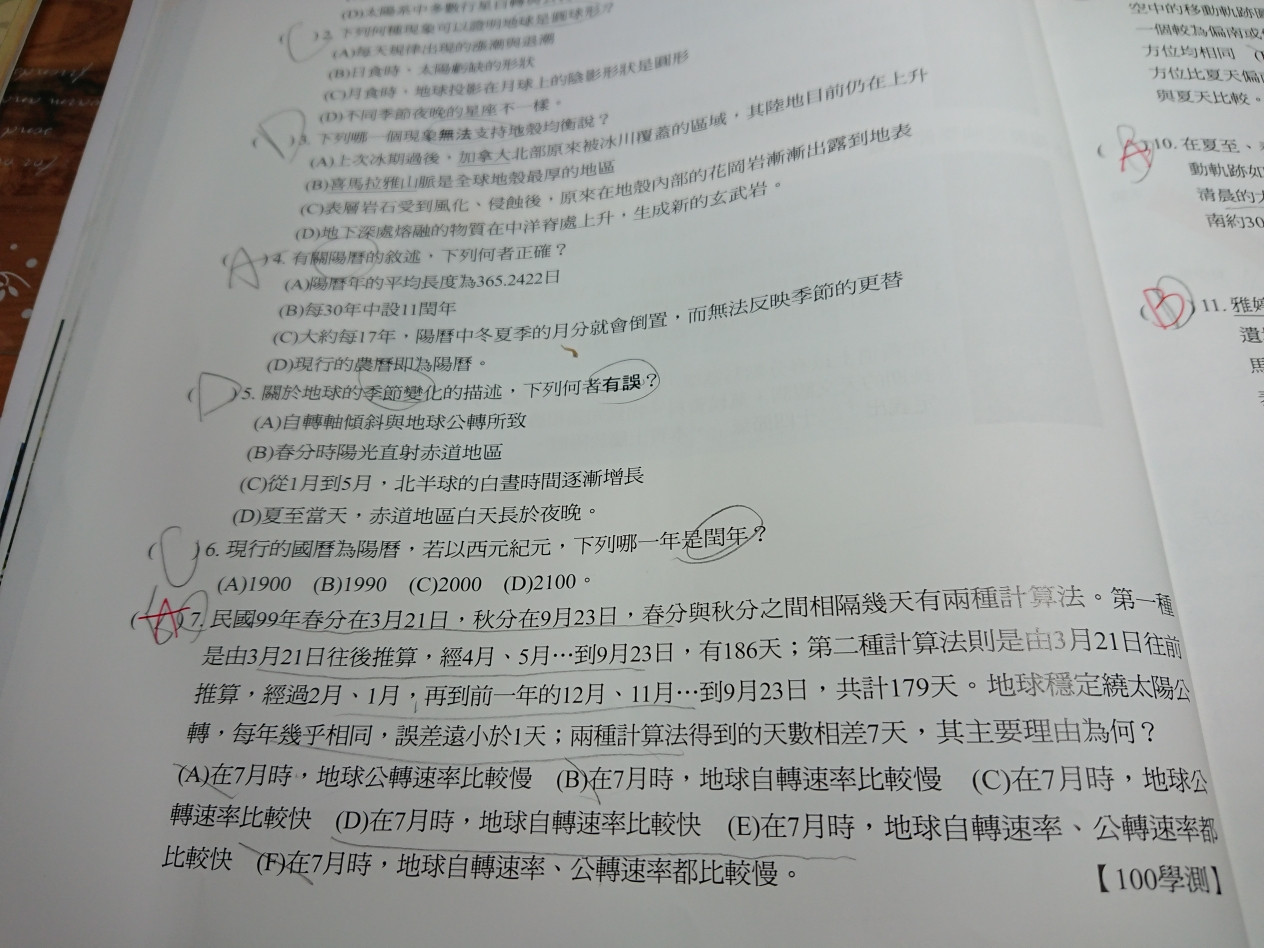 (D)太陽系中多數行星自轉
(C)2. 下列何種現象可以證明地球是圓球形？
(A)每天規律出現的漲潮與退潮
(B)日食時，太陽虧缺的形狀
(C)月食時，地球投影在月球上的陰影形狀是圓形
(D)不同季節夜晚的星座不一樣。
(D)3. 下列哪一個現象無法支持地殼均衡說？
(A)上次冰期過後，加拿大北部原來被冰川覆蓋的區域，其陸地目前仍在上升
(B)喜馬拉雅山脈是全球地殼最厚的地區
(C)表層岩石受到風化、侵蝕後，原來在地殼內部的花岡岩漸漸出露到地表
(D)地下深處熔融的物質在中洋脊處上升，生成新的玄武岩。
(A)4. 有關陽曆的敘述，下列何者正確？
(A)陽曆年的平均長度為365.2422日
(B)每30年中設11閏年
(C)大約每17年，陽曆中冬夏季的月分就會倒置，而無法反映季節的更替
(D)現行的農曆即為陽曆。
(D)5. 關於地球的季節變化的描述，下列何者有誤？
(A)自轉軸傾斜與地球公轉所致
(B)春分時陽光直射赤道地區
(C)從1月到5月，北半球的白晝時間逐漸增長
(D)夏至當天，赤道地區白天長於夜晚。
(C)6. 現行的國曆為陽曆，若以西元紀元，下列哪一年是閏年？
(A)1900 (B)1990 (C)2000 (D)2100。
(A)7. 民國99年春分在3月21日，秋分在9月23日，春分與秋分之間相隔幾天有兩種計算法。第一種
是由3月21日往後推算，經4月、5月…到9月23日，有186天；第二種計算法則是由3月21日往前
推算，經過2月、1月，再到前一年的12月、11月…到9月23日，共計179天。地球穩定繞太陽公
轉，每年幾乎相同，誤差遠小於1天；兩種計算法得到的天數相差7天，其主要理由為何？
(A)在7月時，地球公轉速率比較慢 (B)在7月時，地球自轉速率比較慢 (C)在7月時，地球公
轉速率比較快 (D)在7月時，地球自轉速率比較快 (E)在7月時，地球自轉速率、公轉速率都
比較快 (F)在7月時，地球自轉速率、公轉速率都比較慢。
【100學測】
空中的移動軌跡
一個較為偏南或
方位均相同
方位比夏天偏
與夏天比較。
(A)10. 在夏至、
動軌跡如
清晨的
南約30
(B)11. 雅婷
遺
馬